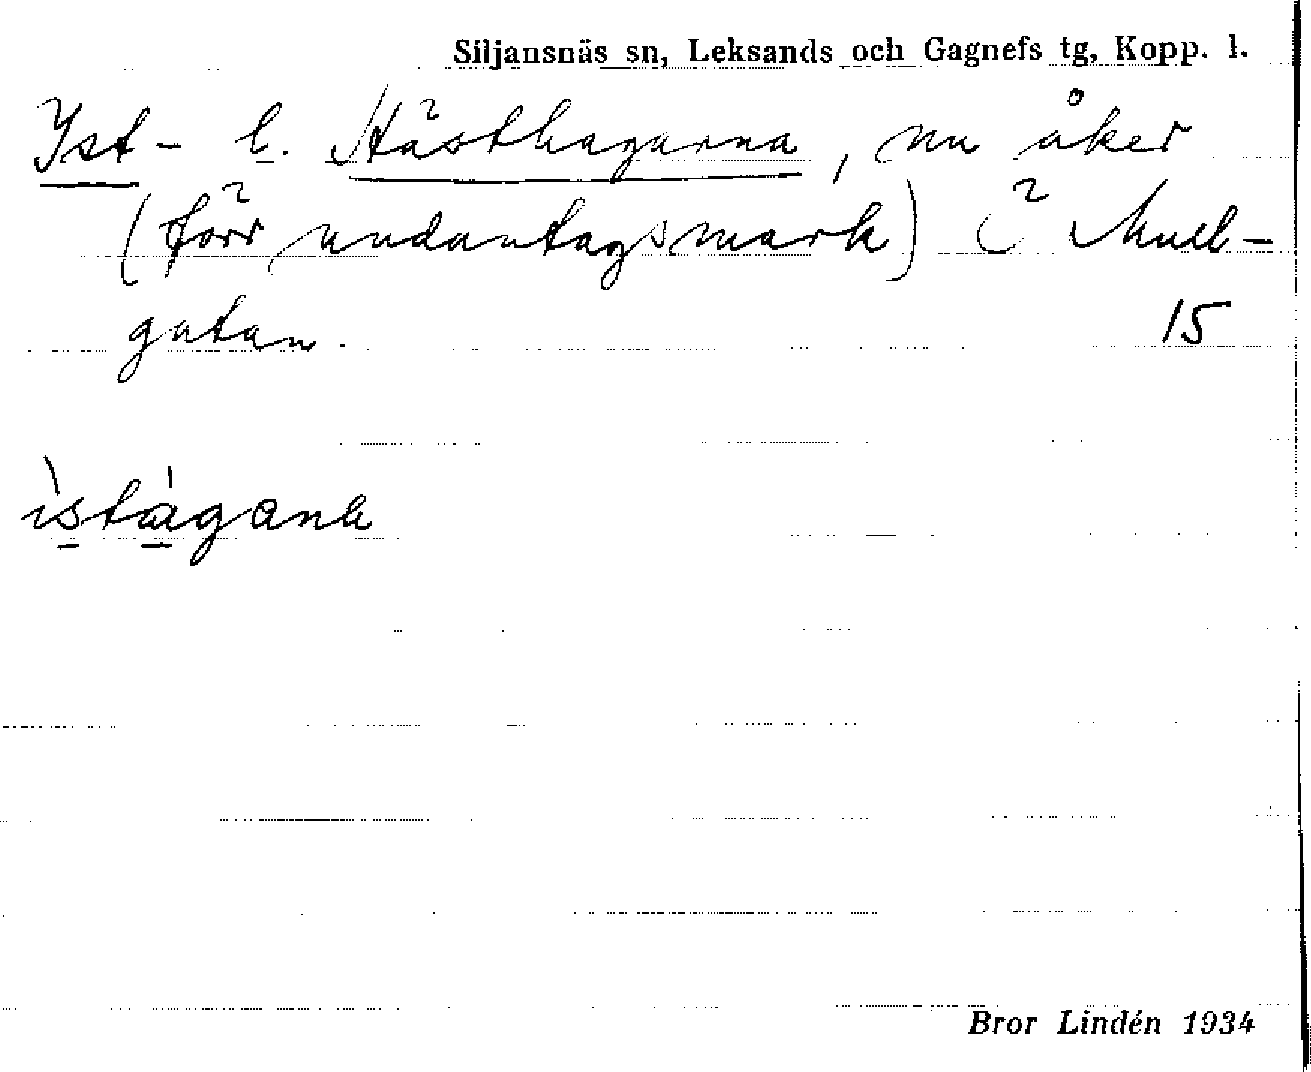 Siljansnäs sn, Leksands och Gagnefs tg, Kopp. l.
Yst- l. Hästhagarna, nu åker
(förr undantagsmark) i Mull-
gatan. 15
ìstágana
Bror Lindén 1934